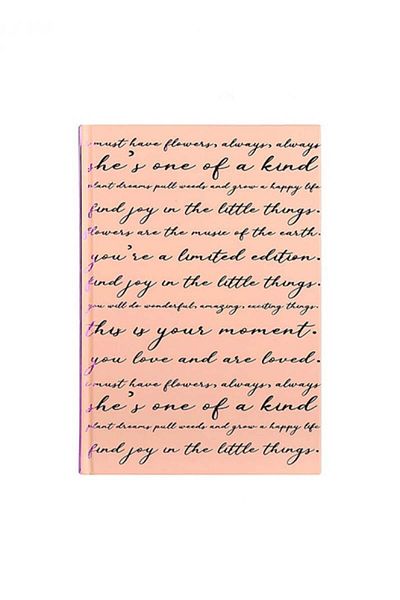 i must have flowers, always, always
she's one of a kind
plant dreams pull weeds and grow a happy life
find joy in the little things.
flowers are the music of the earth.
you're a limited edition.
find joy in the little things.
you will do wonderful, amazing, exciting things.
this is your moment.
you love and are loved.
i must have flowers, always, always
she's one of a kind
plant dreams pull weeds and grow a happy life
find joy in the little things.